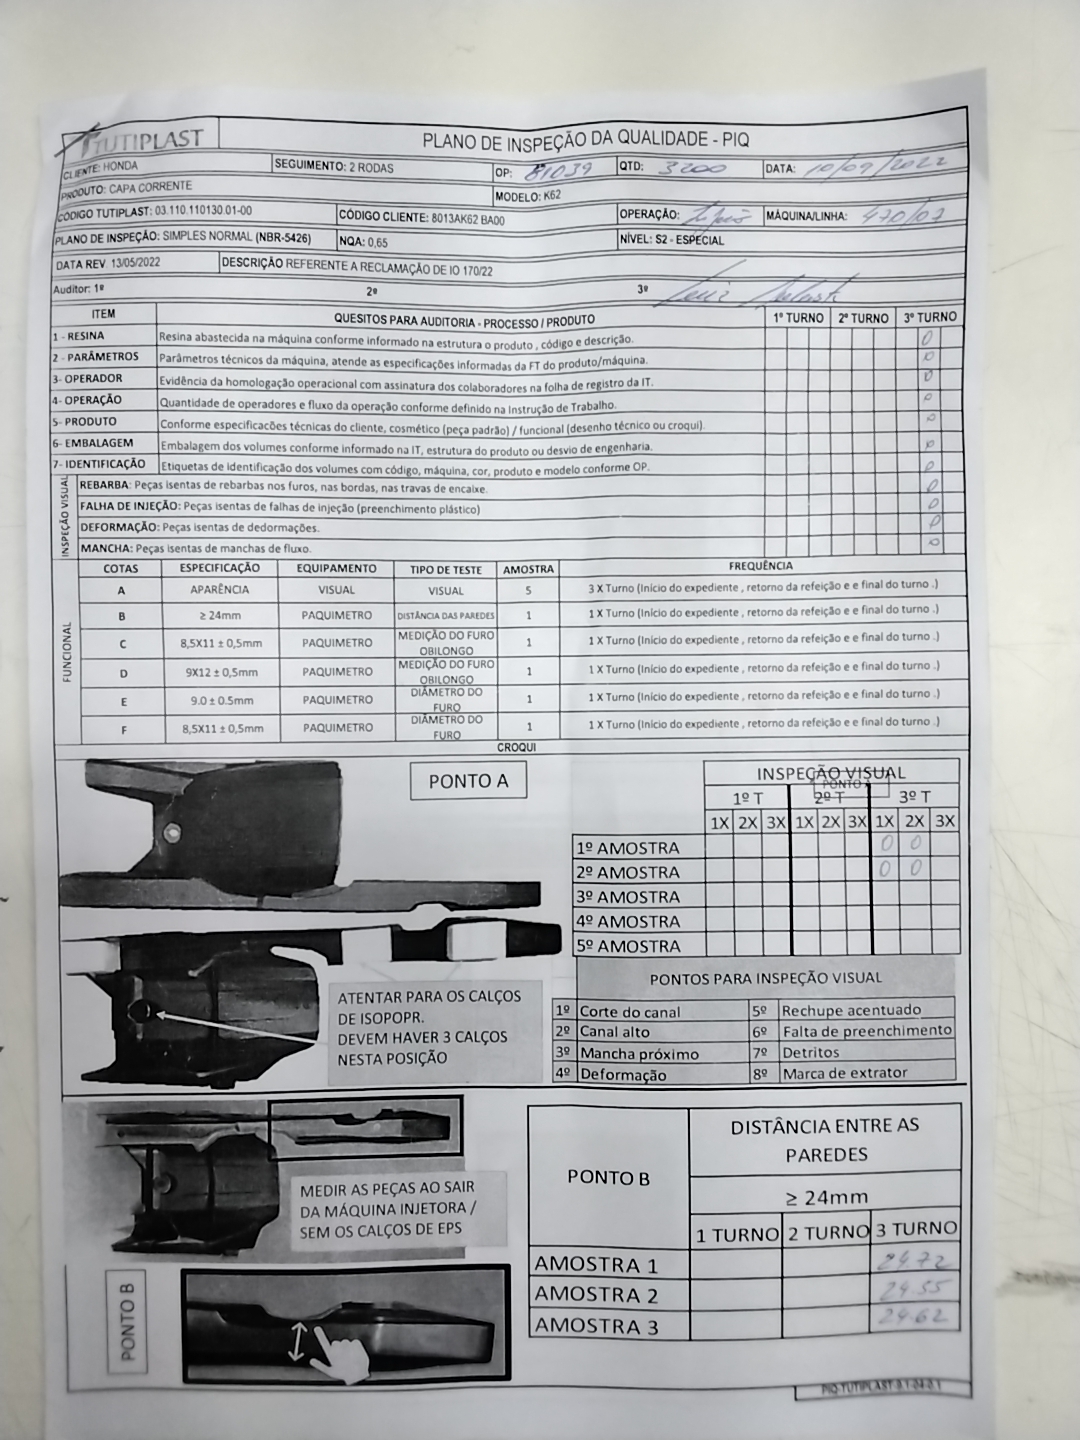 TUTIPLAST
PLANO DE INSPEÇÃO DA QUALIDADE - PIQ
CLIENTE: HONDA SEGUIMENTO: 2 RODAS OP: 81039 QTD: 3200 DATA: 10/09/2022
PRODUTO: CAPA CORRENTE MODELO: K62
CÓDIGO TUTIPLAST: 03.110.110130.01-00 CÓDIGO CLIENTE: 8013AK62 BA00 OPERAÇÃO: MÁQUINA/LINHA: 470/07
PLANO DE INSPEÇÃO: SIMPLES NORMAL (NBR-5426) NQA: 0,65 NÍVEL: S2 - ESPECIAL
DATA REV. 13/05/2022 DESCRIÇÃO REFERENTE A RECLAMAÇÃO DE IO 170/22
Auditor: 1º 2º 3º Luiz
ITEM QUESITOS PARA AUDITORIA - PROCESSO / PRODUTO 1º TURNO 2º TURNO 3º TURNO
1 - RESINA Resina abastecida na máquina conforme informado na estrutura o produto , código e descrição. 0
2 - PARÂMETROS Parâmetros técnicos da máquina, atende as especificações informadas da FT do produto/máquina. 0
3- OPERADOR Evidência da homologação operacional com assinatura dos colaboradores na folha de registro da IT. 0
4- OPERAÇÃO Quantidade de operadores e fluxo da operação conforme definido na Instrução de Trabalho. 0
5- PRODUTO Conforme especificacões técnicas do cliente, cosmético (peça padrão) / funcional (desenho técnico ou croqui). 0
6- EMBALAGEM Embalagem dos volumes conforme informado na IT, estrutura do produto ou desvio de engenharia. 0
7- IDENTIFICAÇÃO Etiquetas de identificação dos volumes com código, máquina, cor, produto e modelo conforme OP. 0
INSPEÇÃO VISUAL
REBARBA: Peças isentas de rebarbas nos furos, nas bordas, nas travas de encaixe. 0
FALHA DE INJEÇÃO: Peças isentas de falhas de injeção (preenchimento plástico) 0
DEFORMAÇÃO: Peças isentas de dedormações. 0
MANCHA: Peças isentas de manchas de fluxo. 0
FUNCIONAL
COTAS ESPECIFICAÇÃO EQUIPAMENTO TIPO DE TESTE AMOSTRA FREQUÊNCIA
A APARÊNCIA VISUAL VISUAL 5 3 X Turno (Início do expediente , retorno da refeição e e final do turno .)
B ≥ 24mm PAQUIMETRO DISTÂNCIA DAS PAREDES 1 1 X Turno (Início do expediente , retorno da refeição e e final do turno .)
C 8,5X11 ± 0,5mm PAQUIMETRO MEDIÇÃO DO FURO OBILONGO 1 1 X Turno (Início do expediente , retorno da refeição e e final do turno .)
D 9X12 ± 0,5mm PAQUIMETRO MEDIÇÃO DO FURO OBILONGO 1 1 X Turno (Início do expediente , retorno da refeição e e final do turno .)
E 9.0 ± 0.5mm PAQUIMETRO DIÂMETRO DO FURO 1 1 X Turno (Início do expediente , retorno da refeição e e final do turno .)
F 8,5X11 ± 0,5mm PAQUIMETRO DIÂMETRO DO FURO 1 1 X Turno (Início do expediente , retorno da refeição e e final do turno .)
CROQUI
PONTO A
INSPEÇÃO VISUAL
PONTO A
1º T 2º T 3º T
1X 2X 3X 1X 2X 3X 1X 2X 3X
1º AMOSTRA 0 0
2º AMOSTRA 0 0
3º AMOSTRA
4º AMOSTRA
5º AMOSTRA
ATENTAR PARA OS CALÇOS
DE ISOPOPR.
DEVEM HAVER 3 CALÇOS
NESTA POSIÇÃO
PONTOS PARA INSPEÇÃO VISUAL
1º Corte do canal 5º Rechupe acentuado
2º Canal alto 6º Falta de preenchimento
3º Mancha próximo 7º Detritos
4º Deformação 8º Marca de extrator
MEDIR AS PEÇAS AO SAIR
DA MÁQUINA INJETORA /
SEM OS CALÇOS DE EPS
PONTO B
PONTO B
DISTÂNCIA ENTRE AS
PAREDES
≥ 24mm
1 TURNO 2 TURNO 3 TURNO
AMOSTRA 1 24.72
AMOSTRA 2 24.55
AMOSTRA 3 24.62
PIQ-TUTIPLAST-9.1-04-0.1